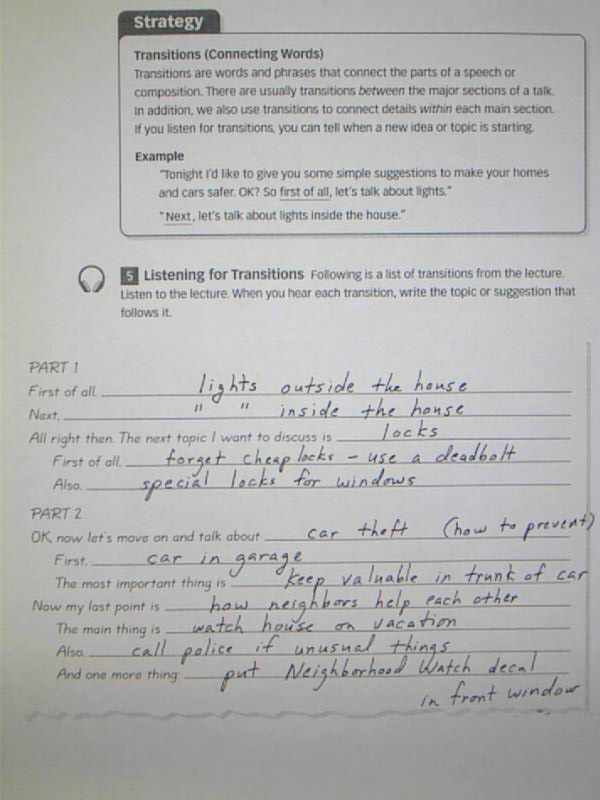 Strategy
Transitions (Connecting Words)
Transitions are words and phrases that connect the parts of a speech or
composition. There are usually transitions between the major sections of a talk.
In addition, we also use transitions to connect details within each main section.
If you listen for transitions, you can tell when a new idea or topic is starting.
Example
"Tonight I'd like to give you some simple suggestions to make your homes
and cars safer, OK? So first of all, let's talk about lights."
"Next, let's talk about lights inside the house."
5 Listening for Transitions Following is a list of transitions from the lecture.
Listen to the lecture. When you hear each transition, write the topic or suggestion that
follows it.
PART 1
First of all, lights outside the house
Next, " " inside the house
All right then. The next topic I want to discuss is locks
First of all, forget cheap locks - use a deadbolt
Also, special locks for windows
PART 2
OK, now let's move on and talk about car theft (how to prevent)
First, car in garage
The most important thing is keep valuable in trunk of car
Now my last point is how neighbors help each other
The main thing is watch house on vacation
Also, call police if unusual things
And one more thing: put Neighborhood Watch decal
in front window